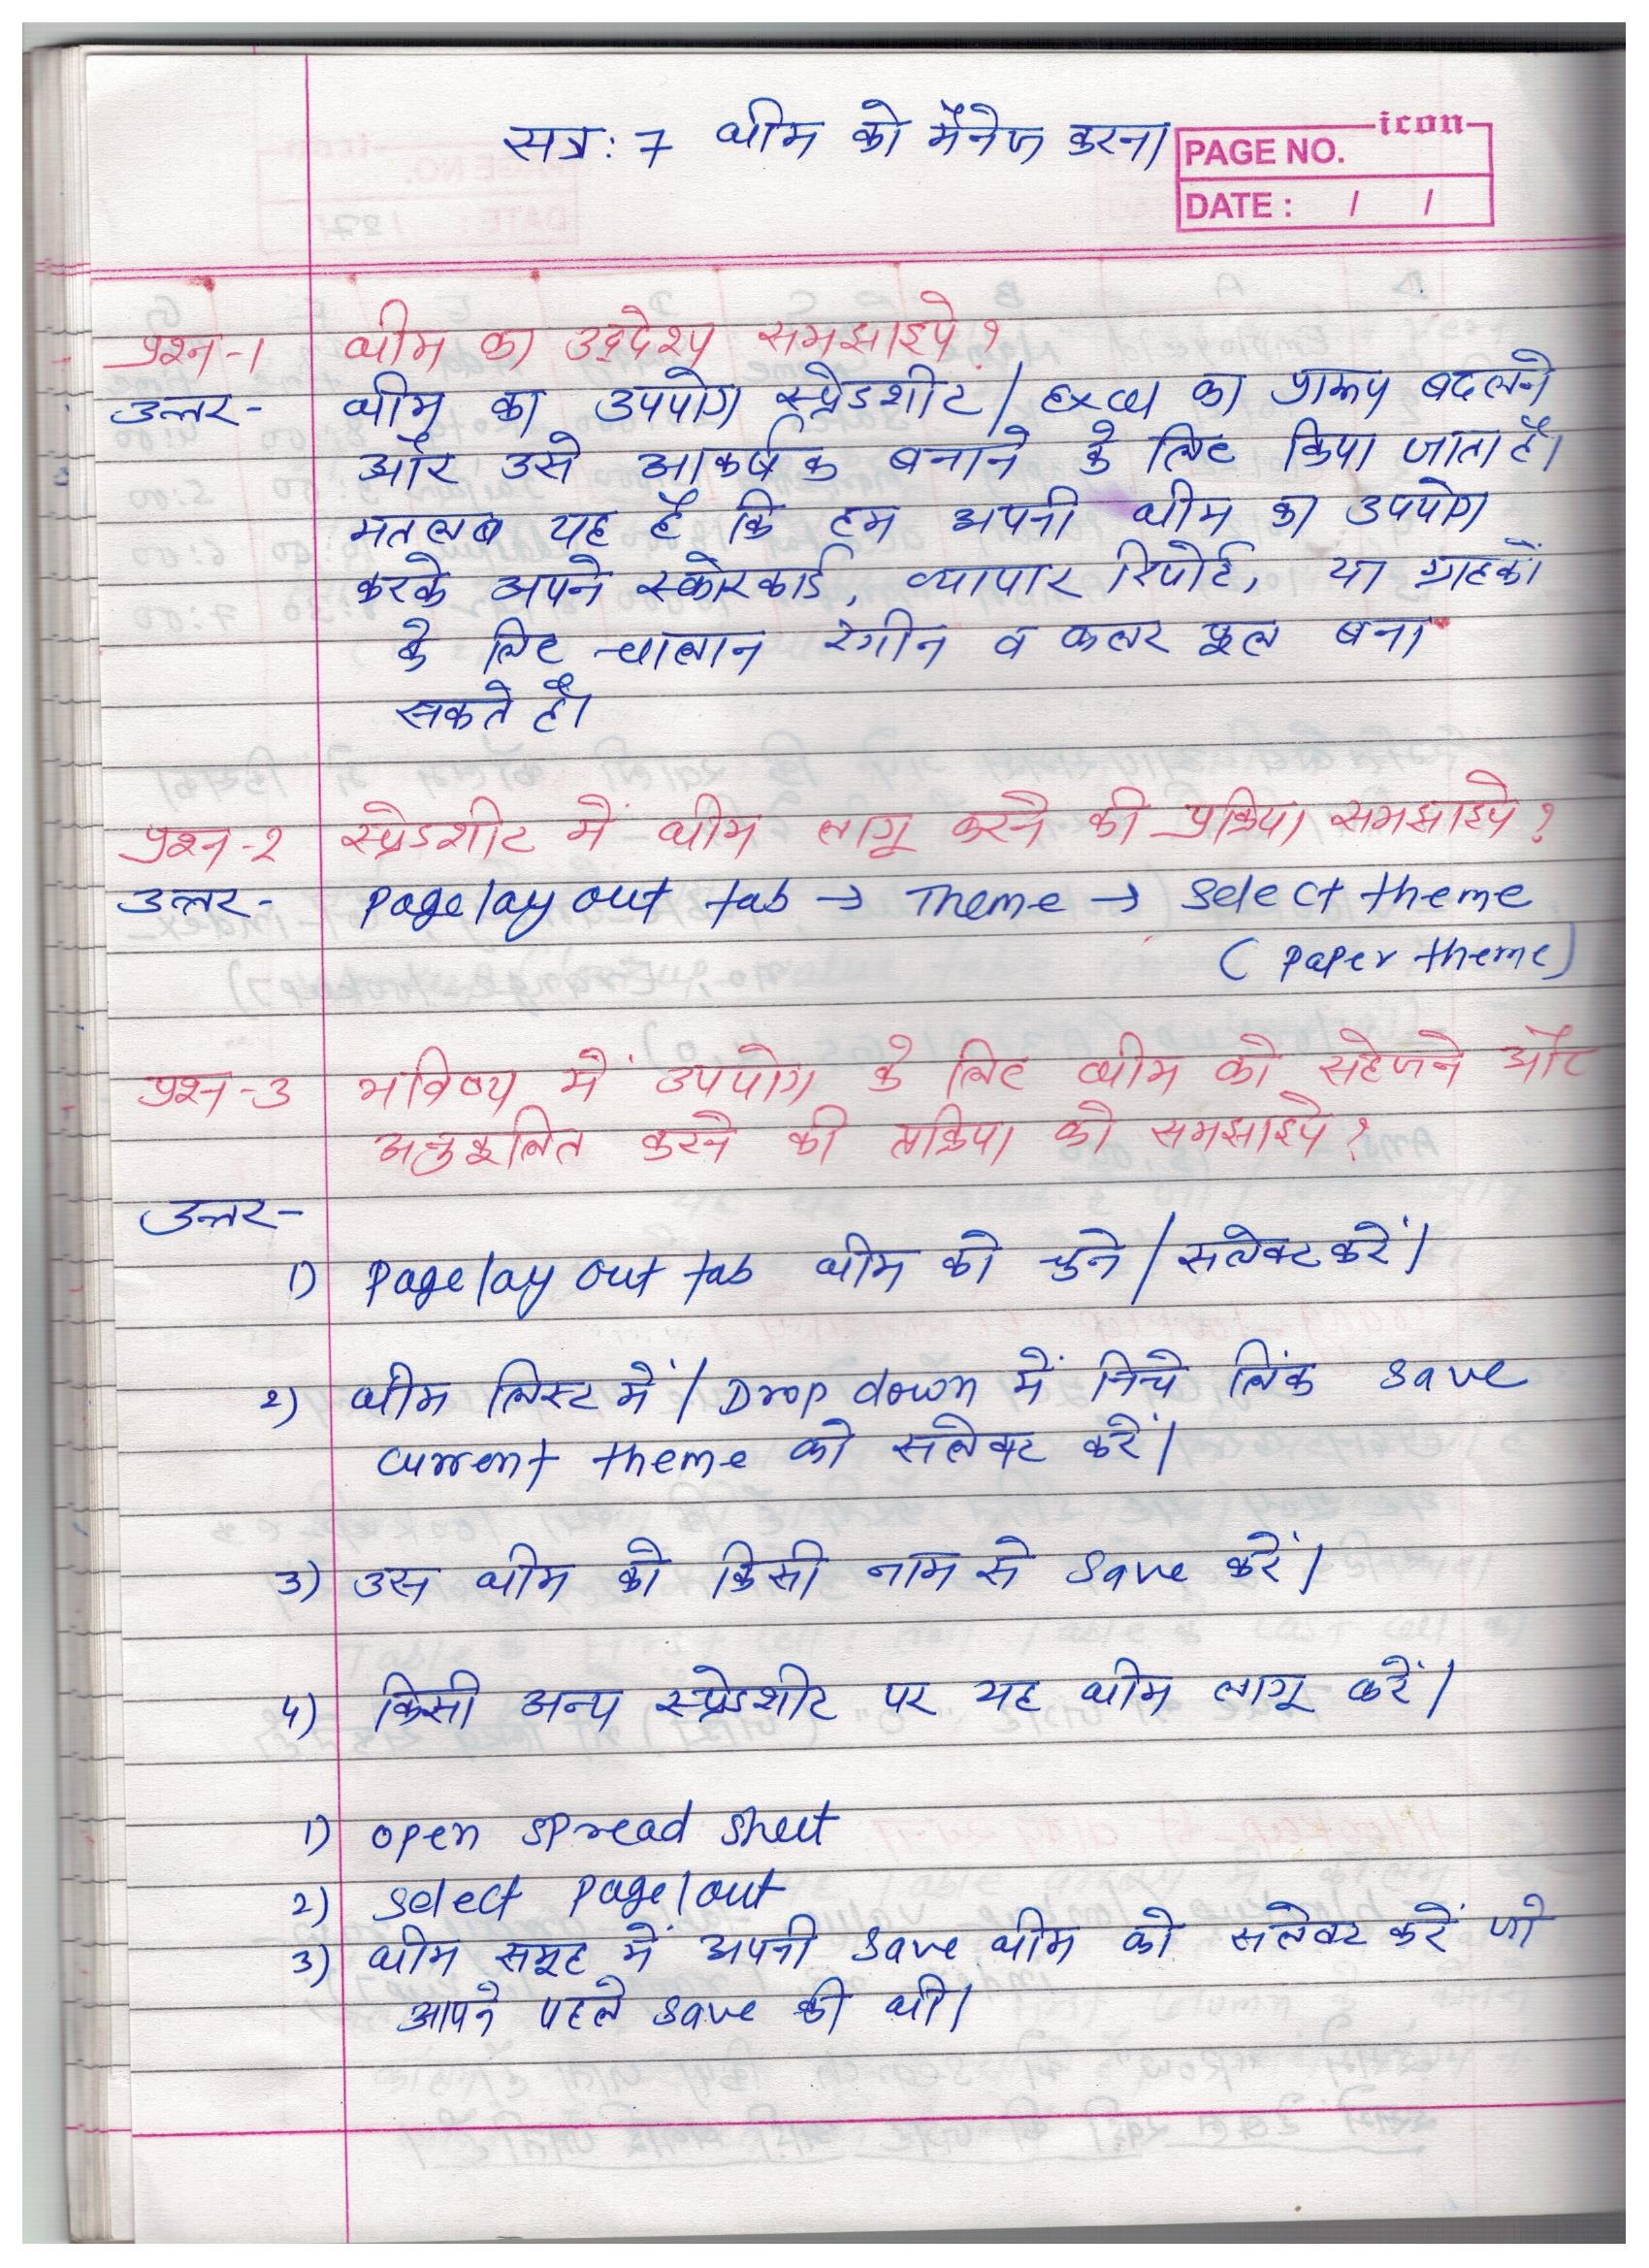 सत्र: 7 थीम को मैनेज करना
icon
PAGE NO.
DATE : / /
प्रश्न-1 थीम का उद्देश्य समझाइये ?
उत्तर- थीम का उपयोग स्प्रेडशीट / Excel का प्रारूप बदलने
और उसे आकर्षक बनाने के लिए किया जाता है।
मतलब यह है कि हम अपनी थीम का उपयोग
करके अपने स्कोरकार्ड, व्यापार रिपोर्ट, या ग्राहकों
के लिए चालान रंगीन व कलर फूल बना
सकते है।
प्रश्न-2 स्प्रेडशीट में थीम लागू करने की प्रक्रिया समझाइये ?
उत्तर- Page lay out tab → Theme → Select theme
( Paper theme )
प्रश्न-3 भविष्य में उपयोग के लिए थीम को सहेजने और
अनुकूलित करने की प्रक्रिया को समझाइये ?
उत्तर-
1) Page lay out tab थीम को चुने / सलेक्ट करें।
2) थीम लिस्ट में / Drop down में निचे लिंक save
current theme को सलेक्ट करें।
3) उस थीम को किसी नाम से save करें।
4) किसी अन्य स्प्रेडशीट पर यह थीम लागू करें।
1) open spread sheet
2) Select page lout
3) थीम समूह में अपनी save थीम को सलेक्ट करें जो
आपने पहले save की थी।